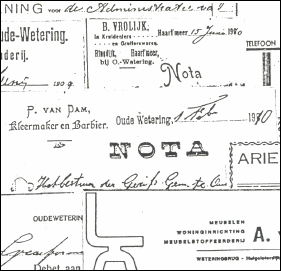 NING voor de Administratie v.d
ude-Wetering.
nderij.
B. VROLIJK.
in Kruideniers
en Grutterswaren.
Rinodijk, Haarf'meer,
bij O.-Wetering.
Haarf'meer, 15 Juni 1910
TELEFOON
Nota
190
P. VAN DAM,
Kleermaker en Barbier.
Oude Wetering, 1 Feb 1910
NOTA
ARIE
Het bestuur der Geref Gem te Ou
OUDEWETERIN
Debet aan
MEUBELEN
WONINGINRICHTING
MEUBELSTOFFEERDERIJ
A. V
WETERINGBRUG - Huigsloterdijk